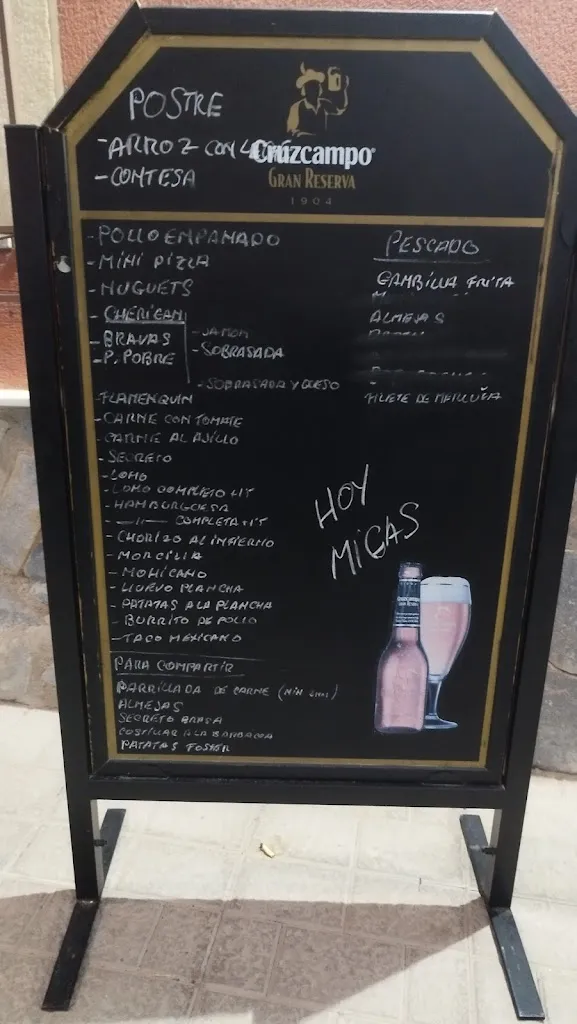 POSTRE
- ARROZ CON
- CONTESA
Cruzcampo
GRAN RESERVA
1904
- POLLO EMPANADO
- MINI PIZZA
- NUGUETS
- CHERIGAN
- JAMON
- SOBRASADA
- SOBRASADA Y QUESO
- BRAVAS
- P. POBRE
- FLAMENQUIN
- CARNE CON TOMATE
- CARNE AL AJILLO
- SECRETO
- LOMO
- LOMO COMPLETO +1€
- HAMBURGUESA
- —11— COMPLETA +1€
- CHORIZO AL INFIERNO
- MORCILLA
- MOHICANO
- HUEVO PLANCHA
- PATATAS A LA PLANCHA
- BURRITO DE POLLO
- TACO MEXICANO
PARA COMPARTIR
PARRILLADA DE CARNE
ALMEJAS
SECRETO BRASA
COSTILLAR A LA BARBACOA
PATATAS FOSTER
PESCADO
GAMBILLA FRITA
ALMEJAS
FILETE DE MERLUZA
HOY
MIGAS